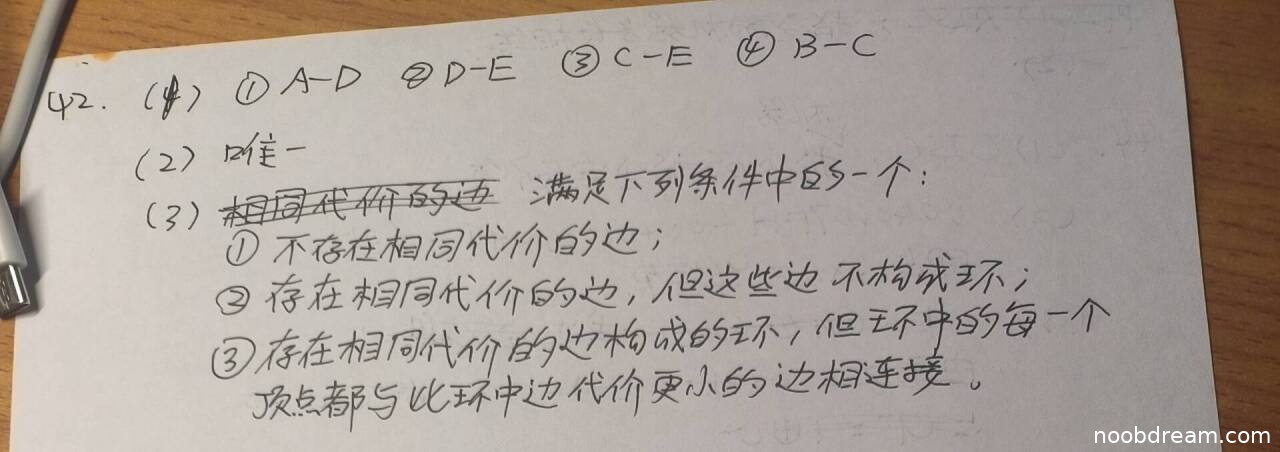 42. (1) ① A-D ② D-E ③ C-E ④ B-C
(2) 唯一
(3) 相同代价的边 满足下列条件中的一个:
① 不存在相同代价的边;
② 存在相同代价的边, 但这些边不构成环;
③ 存在相同代价的边构成的环, 但环中的每一个
顶点都与比环中边代价更小的边相连接。
noobdream.com